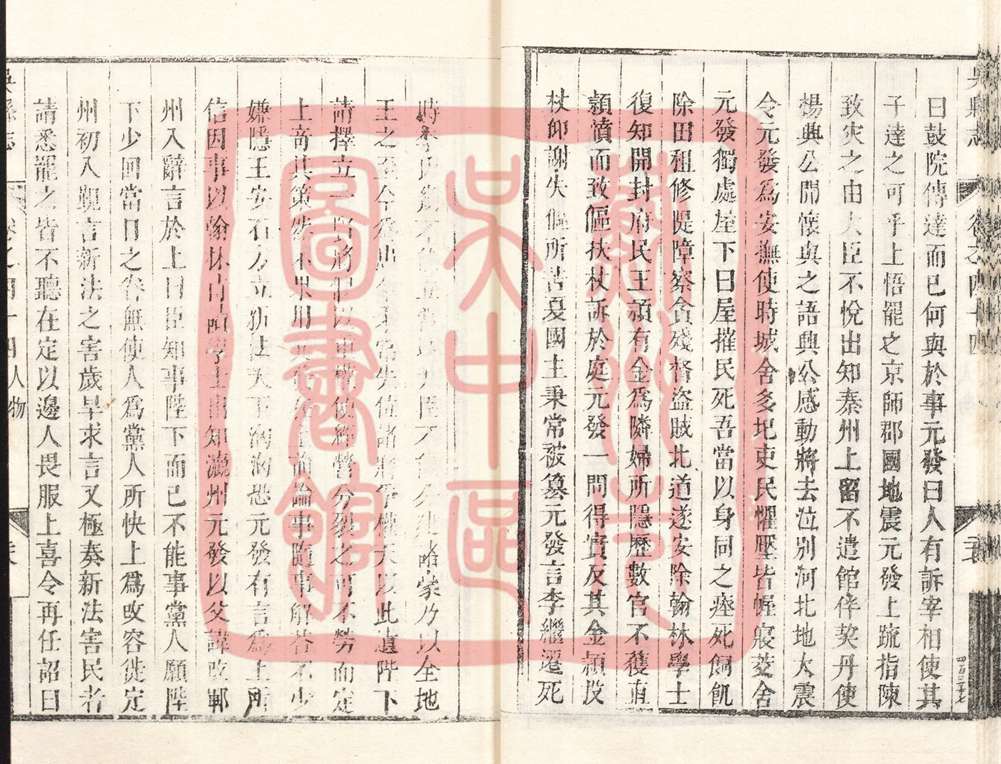 曰鼓院傳達而已何與於事元發曰人有訴宰相使其
子達之可乎上悟罷之京師郡國地震元發上䟽指陳
致灾之由大臣不悅出知秦州上留不遣館伴契丹使
楊興公開懷與之語興公感動將去泣别河北地大震
令元發爲安撫使時城舍多圮吏民懼壓皆幄寢茇舍
元發獨處屋下曰屋摧民死吾當以身同之瘞死飼飢
除田租修隄障察貪殘督盜賊北道遂安除翰林學士
復知開封府民王頴有金爲隣婦所隱歴數官不獲直
頴憤而致傴扶杖訴於庭元發一問得實反其金頴投
杖仰謝失傴所苦夏國主秉常被簒元發言李繼遷死
時李氏 乃以全地
王之至今 常失位諸 爭權天以此遺陛下
請擇立一 將 以 權使經營分裂之可不勞而定
上奇其策然不果用 元發在 前論事隨事解荅不少
嫌隱王安石方立新法天下洶洶恐元發有言爲上所
信因事以翰林 學士出知瀛州元發以父諱改鄆
州入辭言於上曰臣知事陛下而已不能事黨人願陛
下少回當日之眷無使人爲黨人所快上爲改容徙定
州初入覲言新法之害歲旱求言又極奏新法害民者
請悉罷之皆不聽在定以邊人畏服上喜令再任詔曰
吳縣志
卷之四十四
人物
蘇州市
吳中區
圖書館